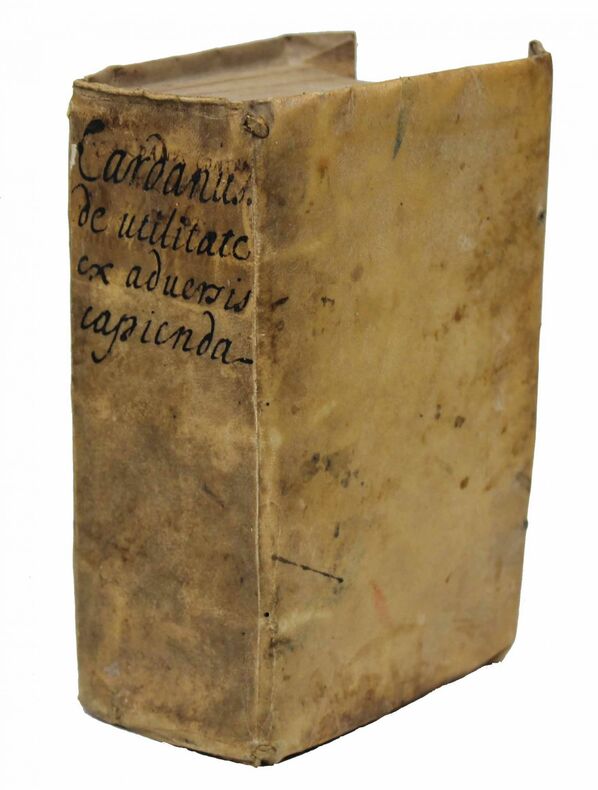 Cardanus.
de utilitate
ex adversis
capienda